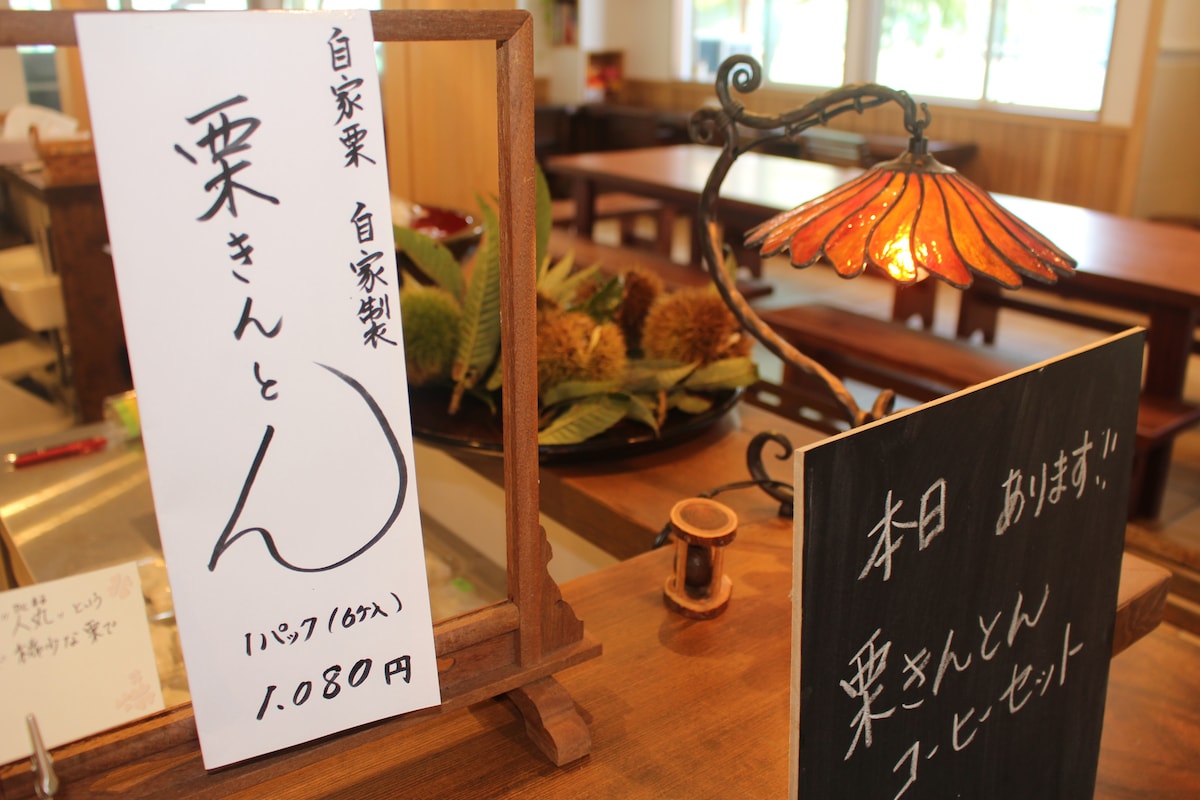 自家栗 自家製
栗きんとん
1パック(6ケ入)
1.080円
本日 あります!!
栗きんとん
コーヒーセット
という
な栗で